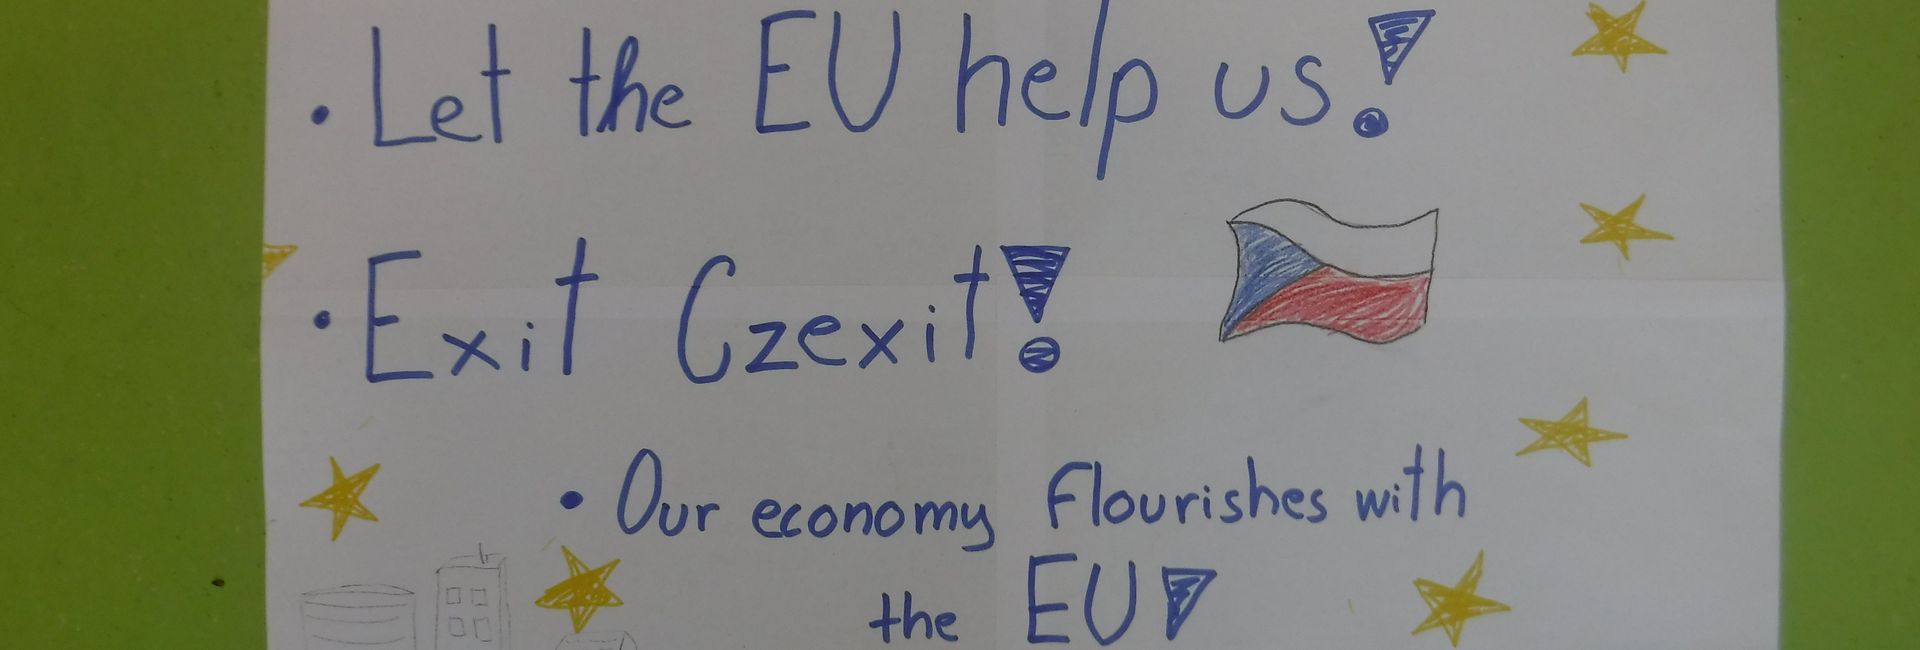 • Let the EU help us!
• Exit Czexit!
• Our economy flourishes with
the EU!